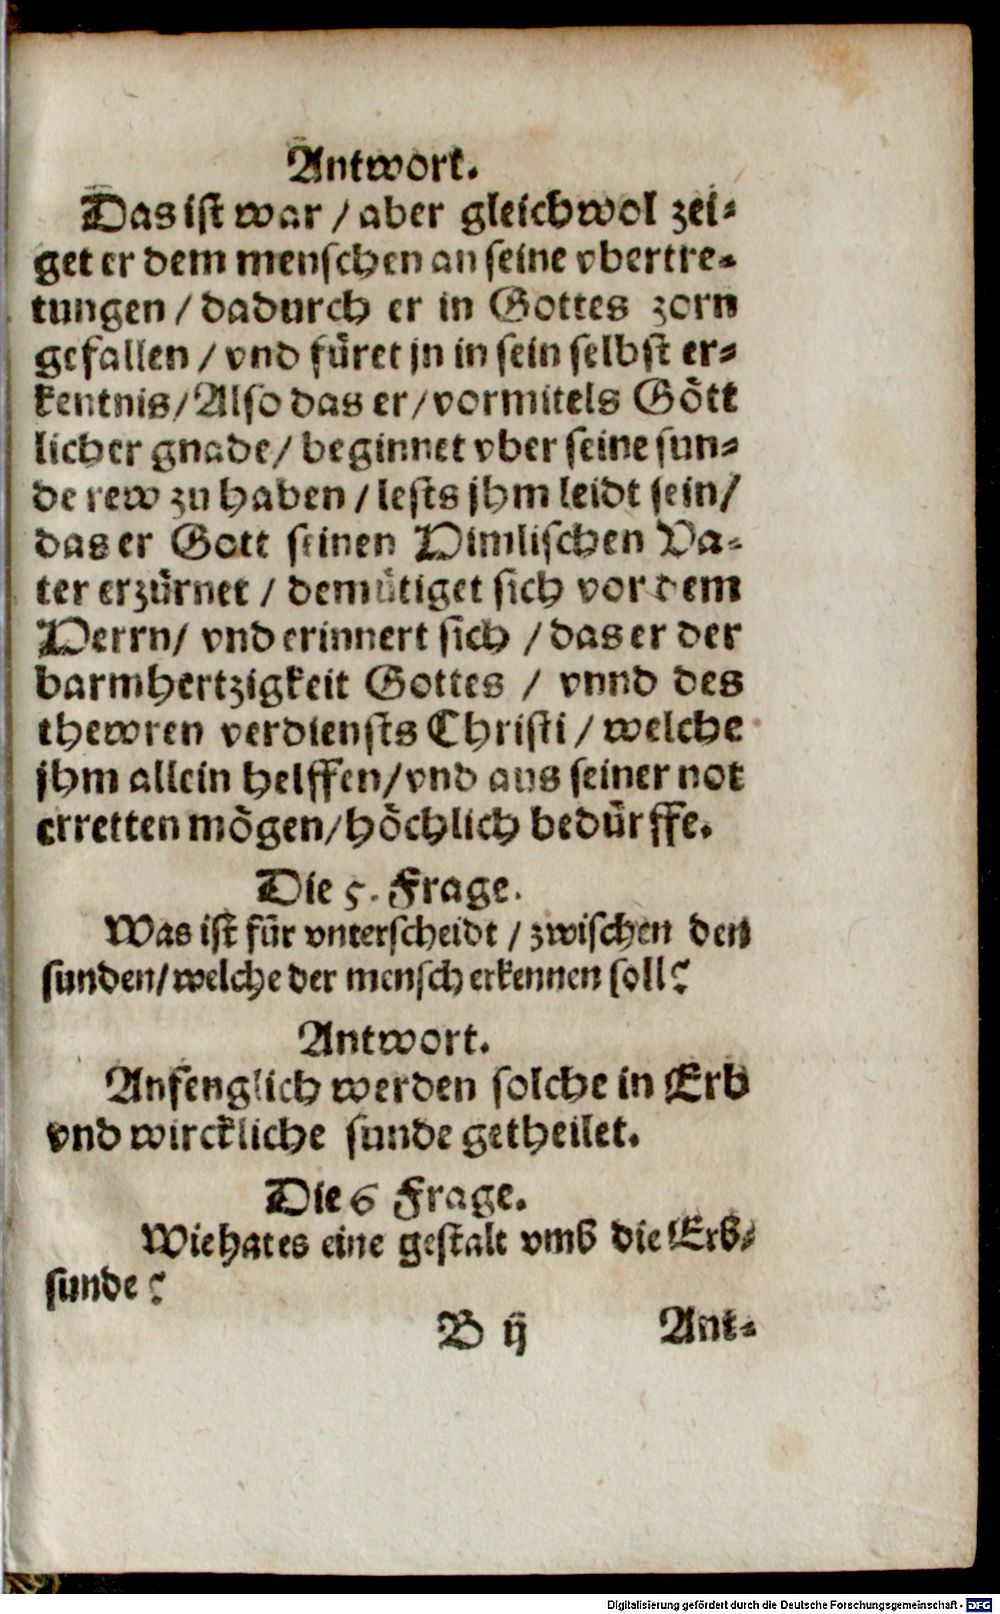 Antwort.
Das ist war / aber gleichwol zei⸗
get er dem menschen an seine vbertre⸗
tungen / dadurch er in Gottes zorn
gefallen / vnd füret jn in sein selbst er⸗
kentnis / Also das er / vormitels Gött
licher gnade / beginnet vber seine sun⸗
de rew zu haben / lests jhm leidt sein /
das er Gott seinen Himlischen Va⸗
ter erzürnet / demütiget sich vor dem
Herrn / vnd erinnert sich / das er der
barmhertzigkeit Gottes / vnnd des
thewren verdiensts Christi / welche
jhm allein helffen / vnd aus seiner not
erretten mögen / höchlich bedürffe.
Die 5. Frage.
Was ist für vnterscheidt / zwischen den
sunden / welche der mensch erkennen soll?
Antwort.
Anfenglich werden solche in Erb
vnd wirckliche sunde getheilet.
Die 6 Frage.
Wie hat es eine gestalt vmb die Erb⸗
sunde?
B ij Ant⸗
Digitalisierung gefördert durch die Deutsche Forschungsgemeinschaft - DFG